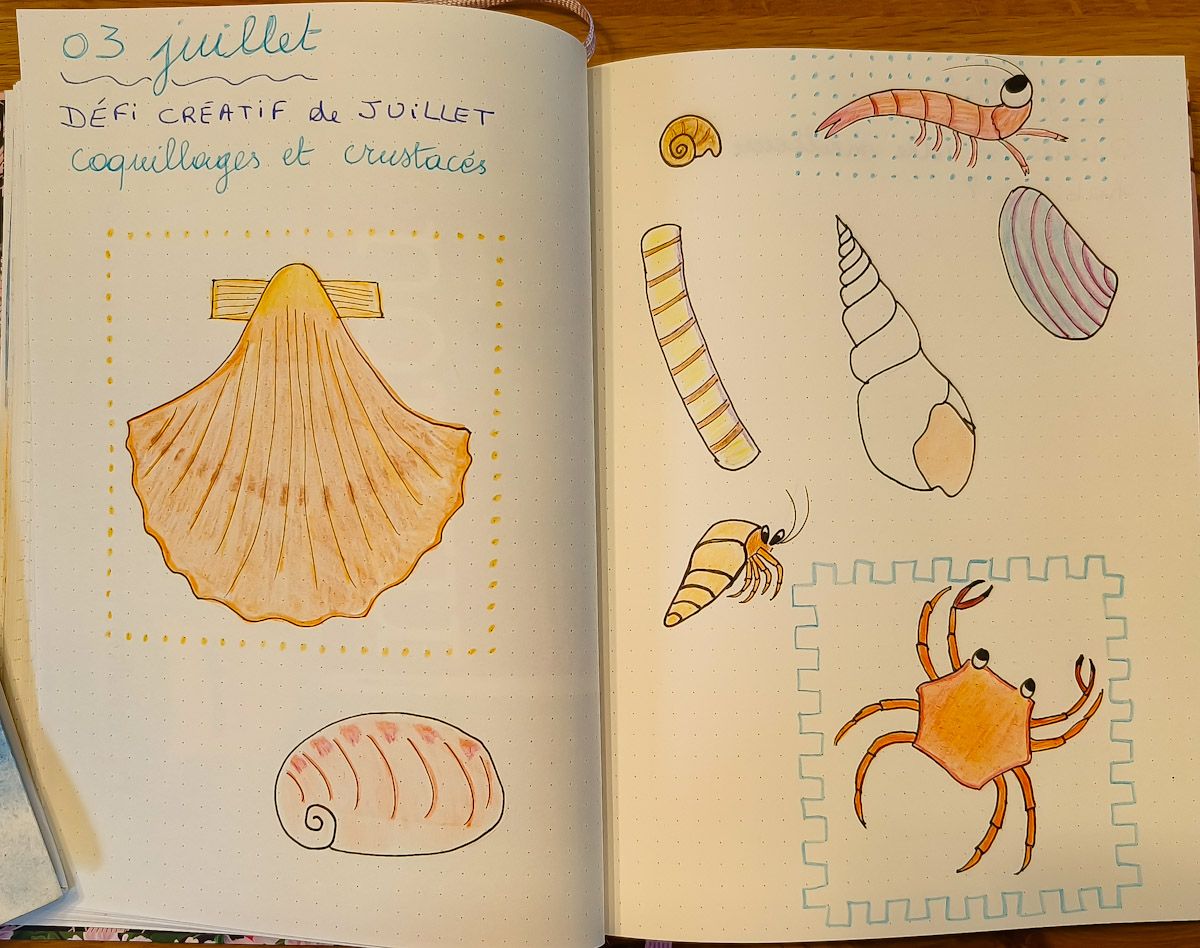 03 juillet
DÉFi CRÉATiF de JUiLLET
coquillages et crustacés